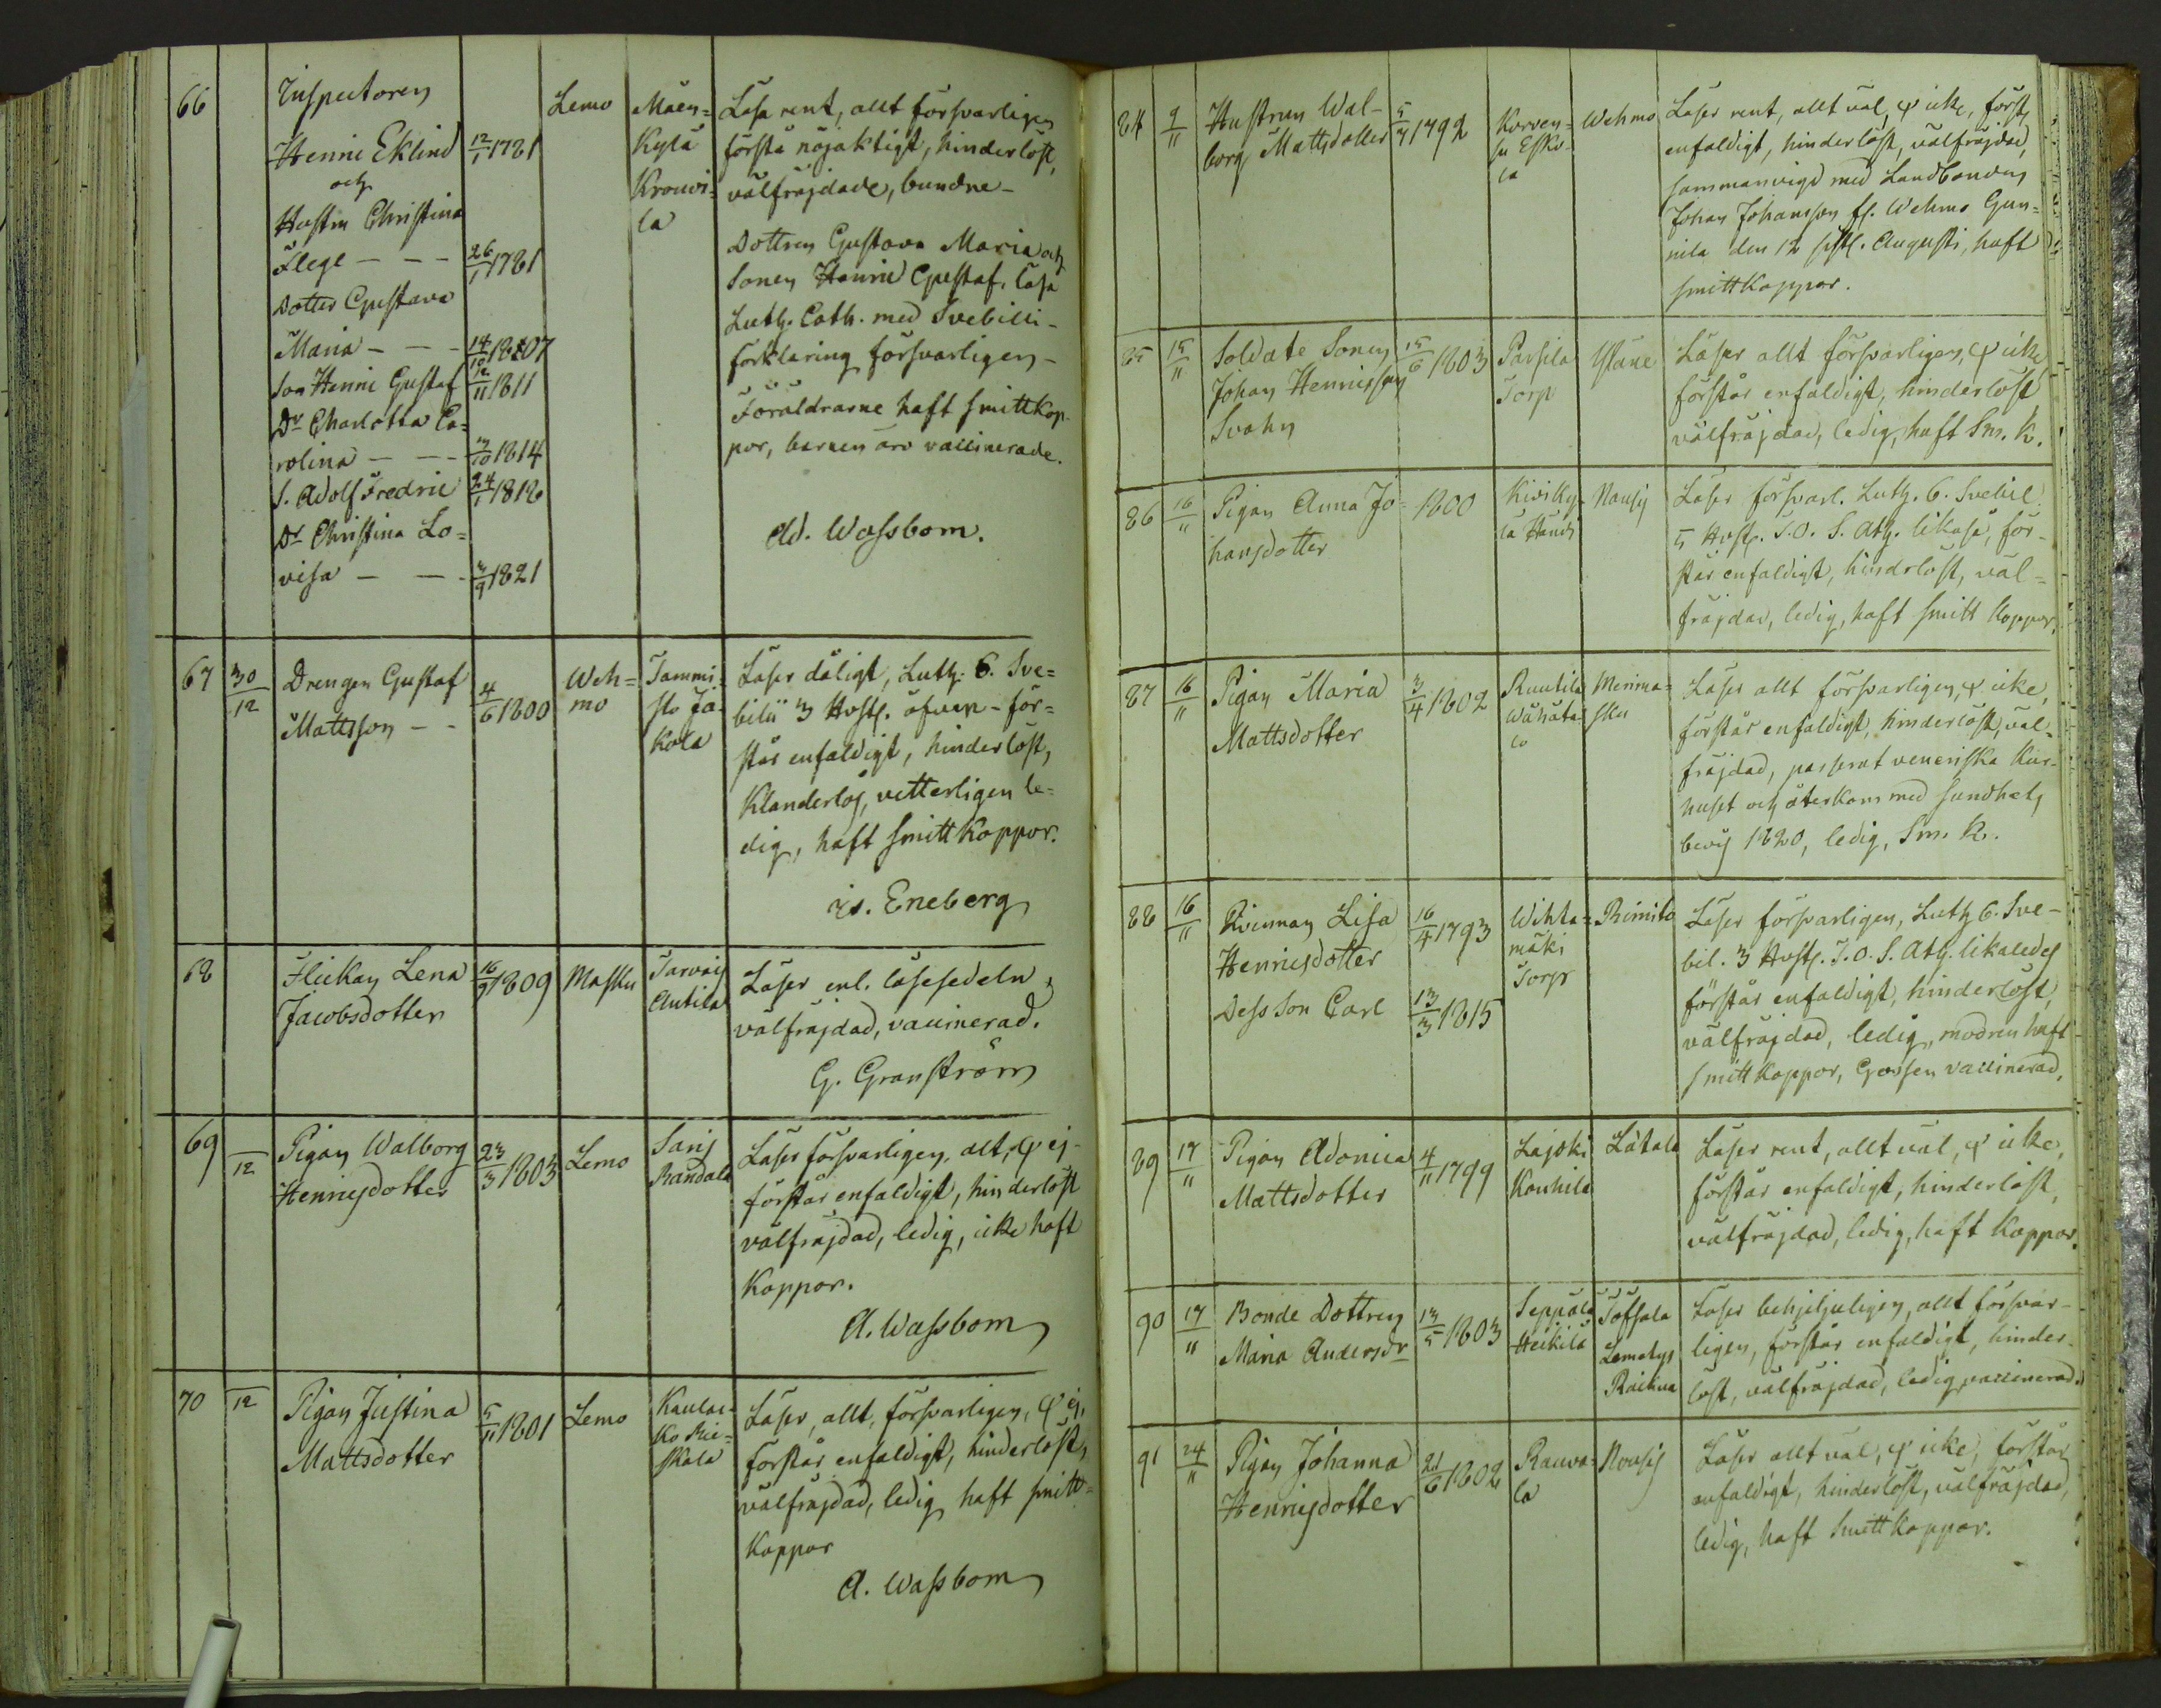 66
Inspectoren
Henric Eklind 12/1 1781
och
Hustru Christina
Flege - - - 26/1 1781
Dotter Gustava
Maria - - - 14/10 1807
Son Henric Gustaf 12/11 1811
Dr Charlotta Ca=
rolina - - - 10 1814
S. Adolf Fredric 24/1 1818
Dr Christina Lo=
visa - - - 3/9 1821
Lemo
Mäen=
Kylä
Krouvi=
la
Läsa rent, allt försvarligen
förstå nöjaktigt, hinderlöst,
välfräjdade, bundne -
Dottren Gustava Maria och
Sonen Henric Gustaf, läsa
Luth. Cath. med Svebilii-
förklaring försvarligen -
Föräldrarne haft smittkop-
por, barnen äro vaccinerade.
Ad. Wassbom.
67 30/12
Drengen Gustaf
Mattsson - -
4/6 1800
Weh=
mo
Tammi=
sto Ja=
kola
Läser dåligt, Luth. C. Sve=
bilii 3 Hufst. äfven - för=
står enfaldigt, hinderlöst,
Klanderlös, vetterligen le=
dig, haft smittkoppor.
Is. Eneberg
68
Flickan Lena
Jacobsdotter
16/9 1809
Masku
Tarvais
Antila
Läser enl. läsesedeln,
välfräjdad, vaccinerad.
G. Granström
69 /12
Pigan Walborg
Henricsdotter
23/3 1803
Lemo
Saris
Randala
Läser försvarligen, alt, & ej-
förstår enfaldigt, hinderlöst
välfräjdad, ledig, icke haft
Koppor.
A. Wassbom
70 /12
Pigan Justina
Mattsdotter
5/11 1801
Lemo
Kaulas=
ko Mie=
skala
Läser, allt, försvarligen, & ej,
förstår enfaldigt, hinderlöst,
välfräjdad, ledig haft smitt=
koppor
A. Wassbom
84 9/11
Hustrun Wal-
borg Mattsdotter
5/7 1792
Korven=
su Esko-
la
Wehmo
Läser rent, allt väl, & icke, förstr
enfaldigt, hinderlöst, välfräjdad,
sammanvigd med Landbonden
Johan Johansson fr. Wehmo Gun=
nila den 12 sistl. Augusti, haft
smittkoppor.
85 15/11
Soldate Sonen
Johan Henricsson
Svahn
15/6 1803
Parsila
Torp
Ystäne
Läser allt försvarligen, & icke
förstår enfaldigt, hinderlöst
välfräjdad, ledig, haft Sm. K.
86 16/11
Pigan Anna Jo-
hansdotter
1800
Kiviky-
lä
Nousis
Läser försvarl. Luth. C. Svebil.
5 Hufst. T.O. S. Ath. likaså, för-
står enfaldigt, hinderlöst, väl=
fräjdad, ledig, haft smitt koppor,
87 16/11
Pigan Maria
Mattsdotter
3/4 1802
Ruutila
Wähäta-
lo
Merima-
sku
Läser allt försvarligen, & icke,
förstår enfaldigt, hinderlöst, väl=
fräjdad, passerat veneriska Kur-
huset och återkom med sundhets
bevis 1820, ledig, Sm. K.
88 16/11
Kvinnan Lisa
Henricsdotter
16/4 1793
Dess Son Carl 13/3 1815
Wihta=
mäki
Torp
Rimito
Läser försvarligen, Luth C. Sve-
bil. 3 Hufst. T.O. S. Ath. likaledes
förstår enfaldigt, hinderlöst,
välfräjdad, ledig, modren haft
smittkoppor, Gossen vaccinerad,
89 17/11
Pigan Adonica
Mattsdotter
4/11 1799
Lajoki
Kouhila
Lätala
Läser rent, allt väl, & icke,
förstår enfaldigt, hinderlöst,
välfräjdad, ledig, haft koppor.
90 17/11
Bonde Dottren
Maria Andersdr
13/5 1803
Seppälä
Heikilä
Töfsala
Lemetys
Läser behjeljeligen, allt försvar-
ligen, förstår enfaldigt, hinder-
löst, välfräjdad, ledig, vaccinerad.
91 24/11
Pigan Johanna
Henricsdotter
21/6 1802
Rauva=
la
Nousis
Läser allt väl, & icke, förstår
enfaldigt, hinderlöst, välfräjdad,
ledig, haft smittkoppor.